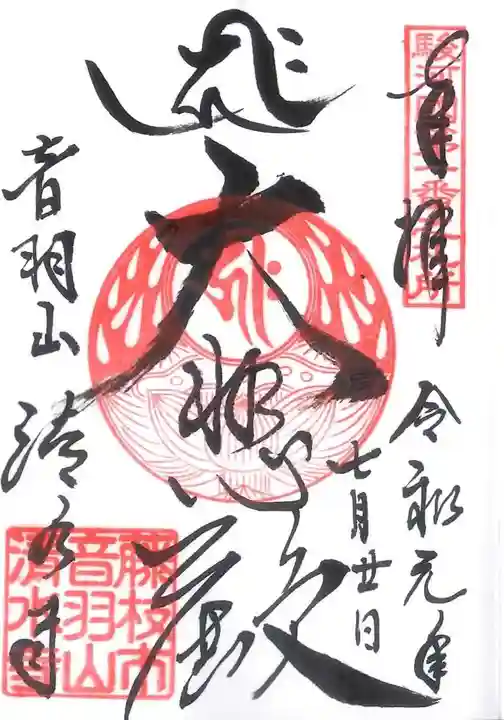 奉拝
駿河国第一番之札所
令和元年
七月廿日
大悲殿
音羽山
清水寺
藤枝市
音羽山
清水寺